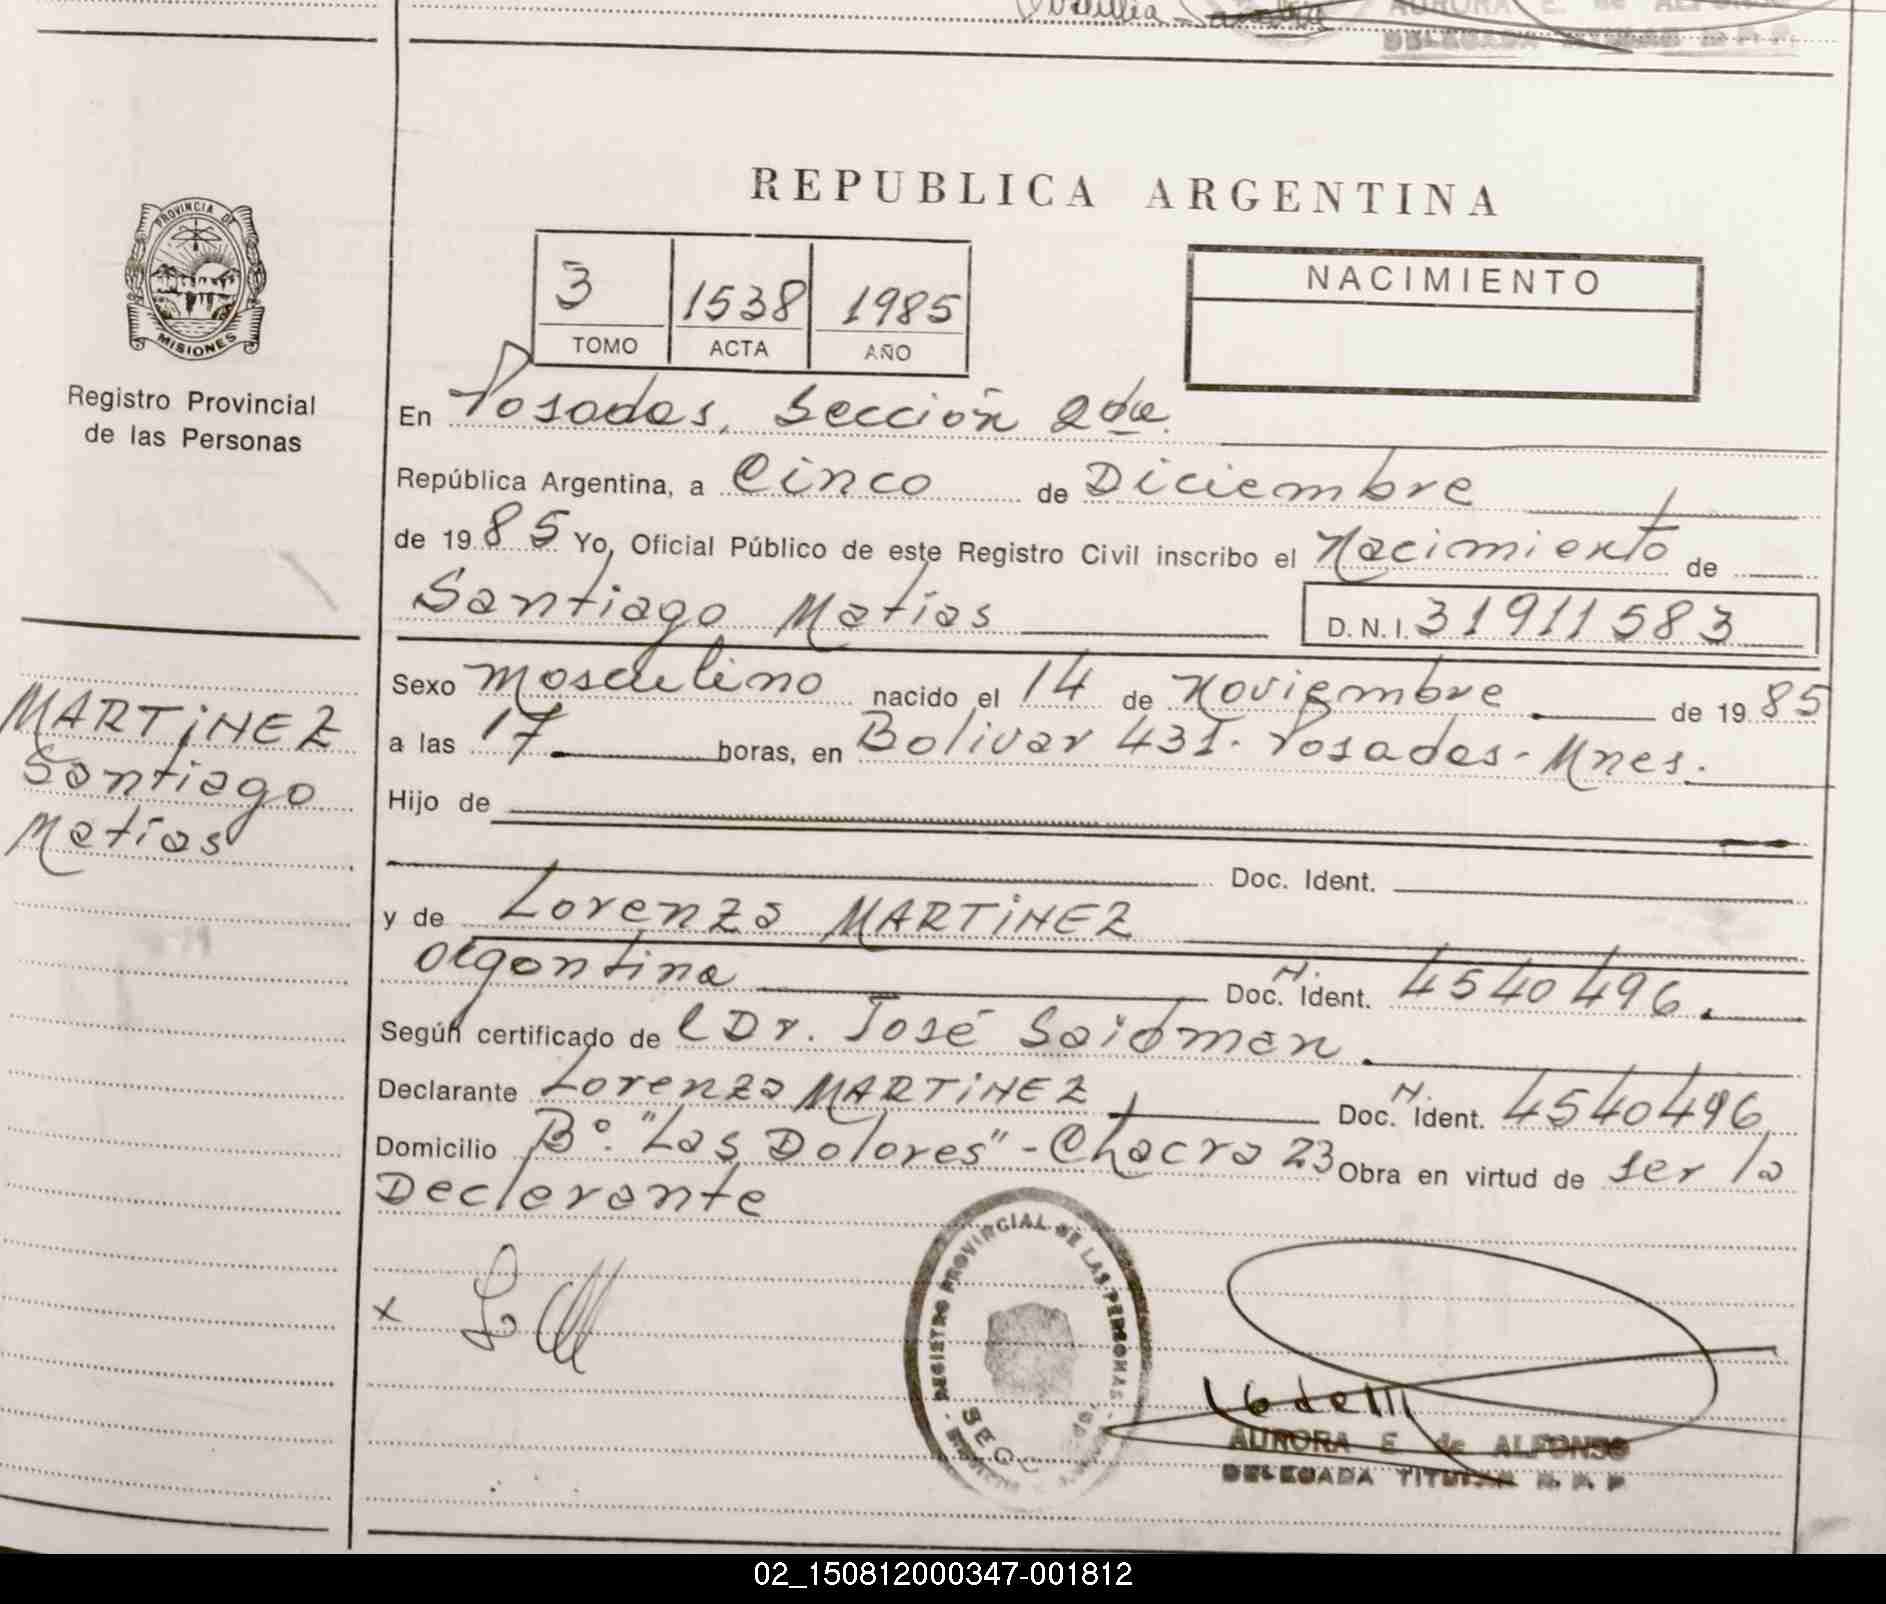 AURORA E. de ALFONSO
DELEGADA TITULAR R. P. P.
REPUBLICA ARGENTINA
PROVINCIA DE
MISIONES
Registro Provincial
de las Personas
3 1538 1985
TOMO ACTA AÑO
NACIMIENTO
En Posadas, Sección 2da.
República Argentina, a Cinco de Diciembre
de 1985 Yo, Oficial Público de este Registro Civil inscribo el Nacimiento de
Santiago Matías D. N. I. 31911583
Sexo Masculino nacido el 14 de Noviembre de 1985
a las 17 horas, en Bolivar 431. Posadas - Mnes.
MARTiNEZ
Santiago
Matías
Hijo de
Doc. Ident.
y de Lorenza MARTiNEZ
argentina Doc. N. Ident. 4540496.
Según certificado de l Dr. José Saidman.
Declarante Lorenza MARTiNEZ Doc. N. Ident. 4540496
Domicilio Bº. "Las Dolores" - Chacra 23 Obra en virtud de ser la
Declarante
x
REGISTRO PROVINCIAL DE LAS PERSONAS
AURORA E. de ALFONSO
DELEGADA TITULAR R. P. P.
02_150812000347-001812